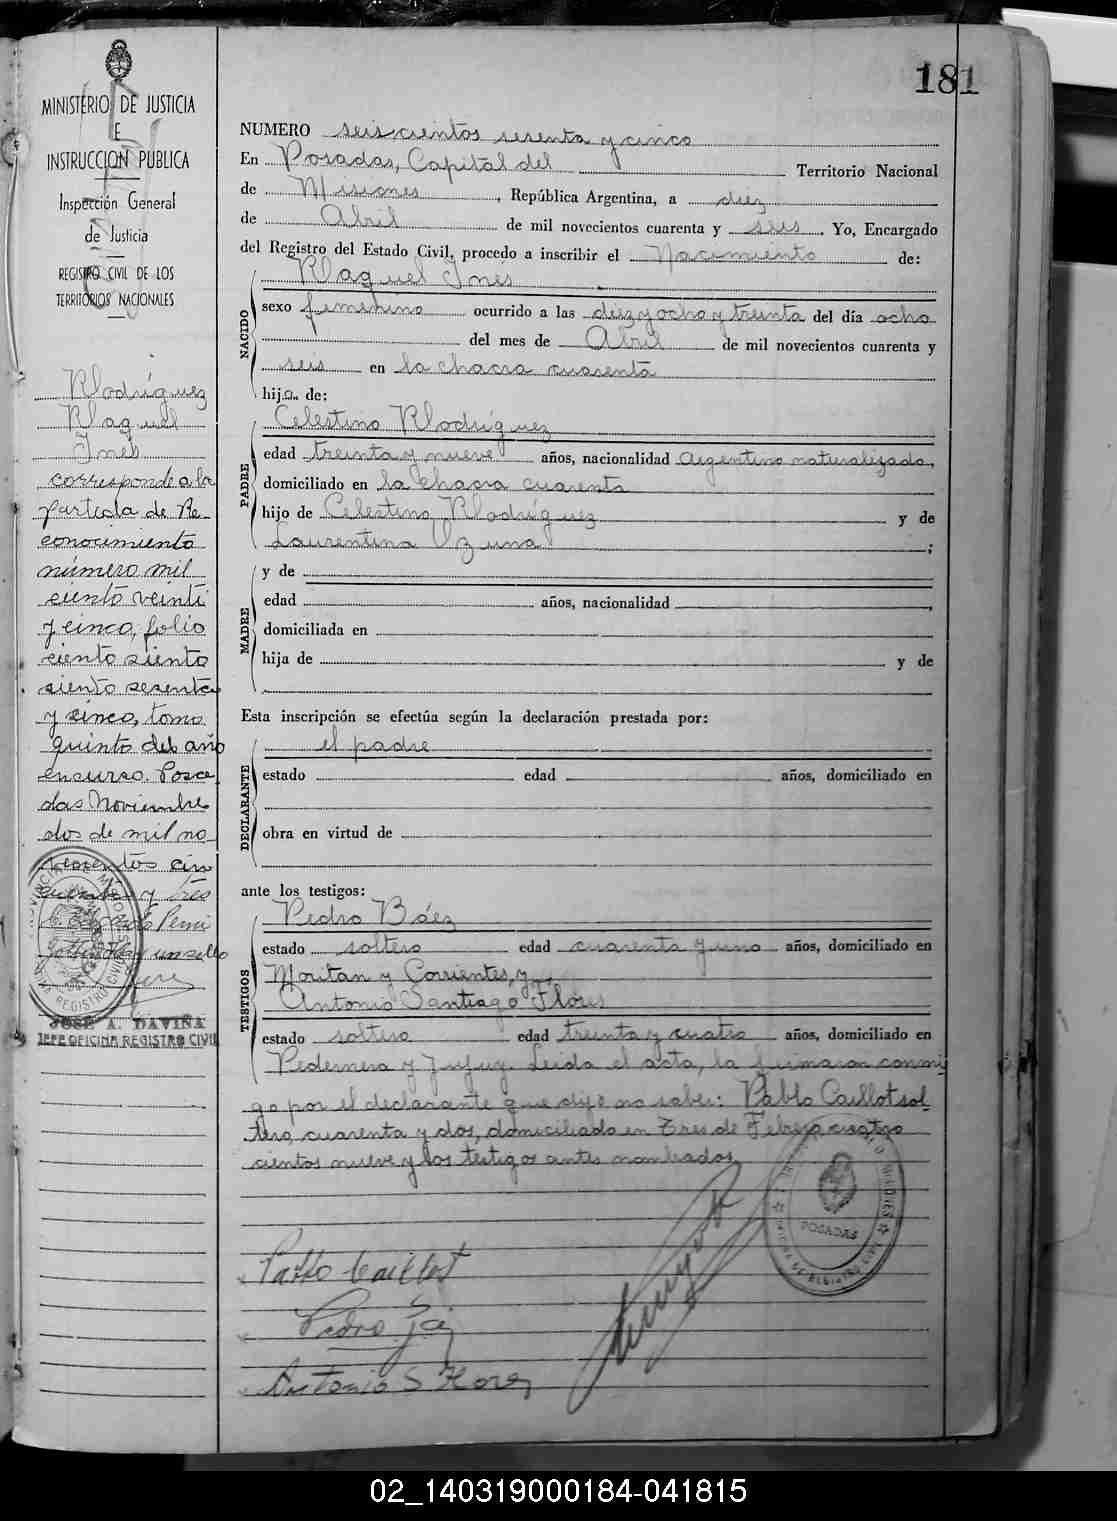 181
MINISTERIO DE JUSTICIA
E
INSTRUCCION PUBLICA
Inspección General
de Justicia
REGISTRO CIVIL DE LOS
TERRITORIOS NACIONALES
Rodríguez
Raquel
Inés
corresponde a la
partida de Re-
conocimiento
número mil
ciento veinti
y cinco, folio
ciento siento
siento sesenta
y cinco, tomo
quinto del año
en curso. Posa
das Noviembre
dos de mil no-
vecientos cin
cuenta y tres
un sello
JOSE A. DAVIÑA
JEFE OFICINA REGISTRO CIVIL
NUMERO seiscientos sesenta y cinco
En Posadas, Capital del Territorio Nacional
de Misiones, República Argentina, a diez
de Abril de mil novecientos cuarenta y seis. Yo, Encargado
del Registro del Estado Civil, procedo a inscribir el Nacimiento de:
Raquel Inés
NACIDO
sexo femenino ocurrido a las diez y ocho y treinta del día ocho
del mes de Abril de mil novecientos cuarenta y
seis en la chacra cuarenta
hija de:
Celestino Rodríguez
PADRE
edad treinta y nueve años, nacionalidad argentino naturalizado,
domiciliado en la chacra cuarenta
hijo de Celestino Rodríguez y de
Laurentina Ozuna;
y de
MADRE
edad años, nacionalidad ,
domiciliada en
hija de y de
Esta inscripción se efectúa según la declaración prestada por:
el padre
DECLARANTE
estado edad años, domiciliado en
obra en virtud de
ante los testigos:
Pedro Báez
TESTIGOS
estado soltero edad cuarenta y uno años, domiciliado en
Moritan y Corrientes, y
Antonio Santiago Flores
estado soltero edad treinta y cuatro años, domiciliado en
Pedernera y Jujuy. Leida el acta, la firmaron conmi
go por el declarante que dijo no saber: Pablo Caillot sol-
tero, cuarenta y dos, domiciliado en Tres de Febrero cuatro
cientos nueve y los testigos antes nombrados
Pablo Caillot
Pedro
Antonio S Flores
POSADAS
02_140319000184-041815